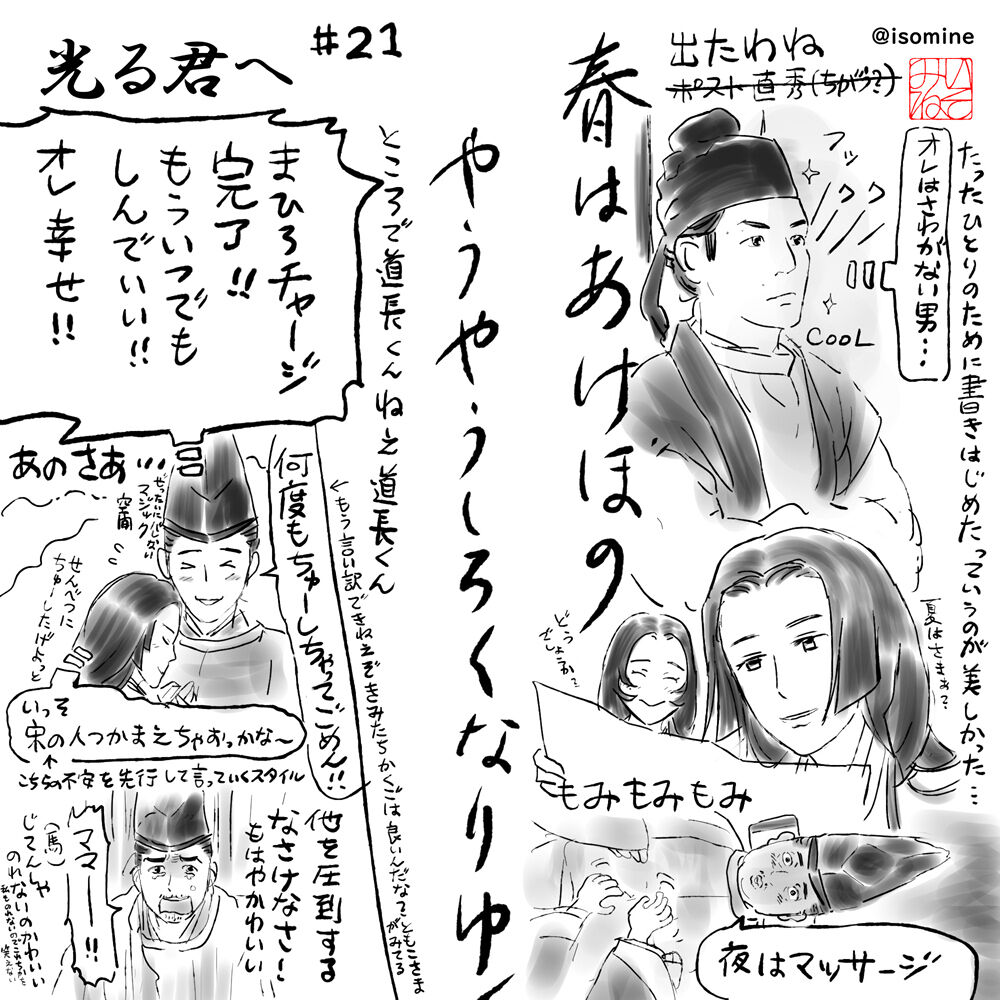 @isomine
いそ
みね
出たわね
ポスト直秀(ちがう?)
オレはさわがない男…
フッ
COOL
たったひとりのために書きはじめたっていうのが美しかった…
春はあけぼの
やうやうしろくなりゆ
夏はさまぁ?
どうでしょうか?
もみもみもみ
夜はマッサージ
#21
光る君へ
まひろチャージ
完了!!
もういつでも
しんでいい!!
オレ幸せ!!
ところで道長くんねえ道長くん
←もう言い訳できねえぞきみたちかくごは良いんだな?ともこさまがみてる
何度もちゅーしちゃってごめん!!
あのさあ…
ぜったいにバレない
マジック
空間
せんべつに
ちゅーしたげよっと
いっそ
宋の人つかまえちゃおっかな〜
こちらの不安を先行して言っていくスタイル
他を圧到する
なさけなさ!
もはやかわいい
ママーー!!
(馬)
じてんしゃ
のれないのかわいい
私ものれないのでこちらが
笑えない